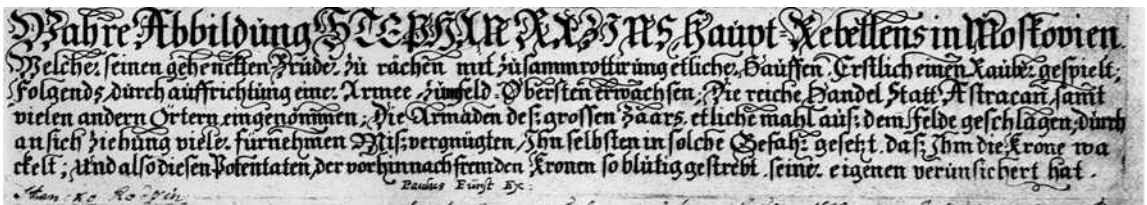 Wahre Abbildung STEPHAN RAZINS, Haupt-Rebellens in Moskovien.
Welcher seinen gehenckten Bruder zu rächen mit zusammrottirung etlicher Hauffen Erstlich einen Rauber gespielt;
Folgends durch auffrichtung einer Armee zum Feld-Obersten erwachsen; Die reiche Handel Statt Astracan, samt
vielen andern Örtern eingenommen; Die Armaden desz grossen Zaars etliche mahl ausz dem Felde geschlagen; durch
an sich ziehung vieler fürnehmen Miszvergnügten, Ihn selbsten in solche Gefahr gesetzt, dasz Ihm die Krone wa
ckelt; Und also diesen Potentaten, der vorhin nach fremden Kronen so blutig gestrebt, seiner eigenen verunsichert hat.
Paulus Fürst Ex: